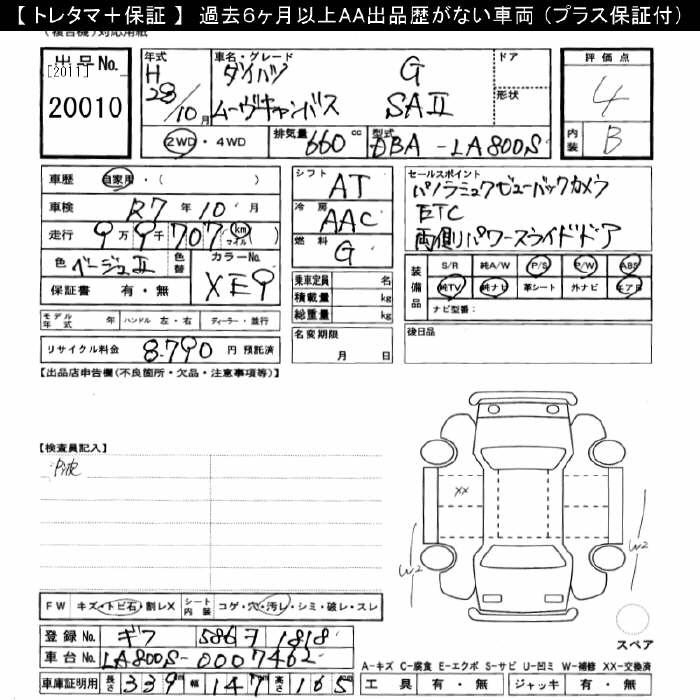 【トレタマ＋保証】 過去6ヶ月以上AA出品歴がない車両（プラス保証付）
出品No.
[2011]
20010
年式 H 28/10月
車名・グレード ダイハツ G
ムーヴキャンバス SAⅡ
ドア
形状
2WD・4WD 排気量 660 cc 型式 DBA-LA800S
評価点
4
内装 B
車歴 自家用・( )
車検 R7年 10月
走行 9万9千707 (km マイル)
色 ベージュⅡ 色替 カラーNo. XE9
保証書 有・無
モデル年式 年 ハンドル 左・右 ディーラー・並行
リサイクル料金 8,790 円 預託済
シフト AT
冷房 AAC
燃料 G
乗車定員 名
積載量 kg
総重量 kg
名変期限
月 日
セールスポイント
パノラミックビューバックカメラ
ETC
両側パワースライドドア
装備品 S/R 純A/W P/S P/W ABS
純TV 純ナビ 革シート 外ナビ エアB
ナビ型番：
後日品
【出品店申告欄(不良箇所・欠品・注意事項等)】
【検査員記入】
XX
W2
W2
FW キズ・トビ石・割レX シート内装 コゲ・穴・汚レ・シミ・破レ・スレ
登録No. ギフ 586 ヲ 1818
車台No. LA800S-0007462
車庫証明用 長さ 339 幅 147 高さ 165
スペア
A-キズ C-腐食 E-エクボ S-サビ U-凹ミ W-補修 XX-交換済
工具 有・無 ジャッキ 有・無